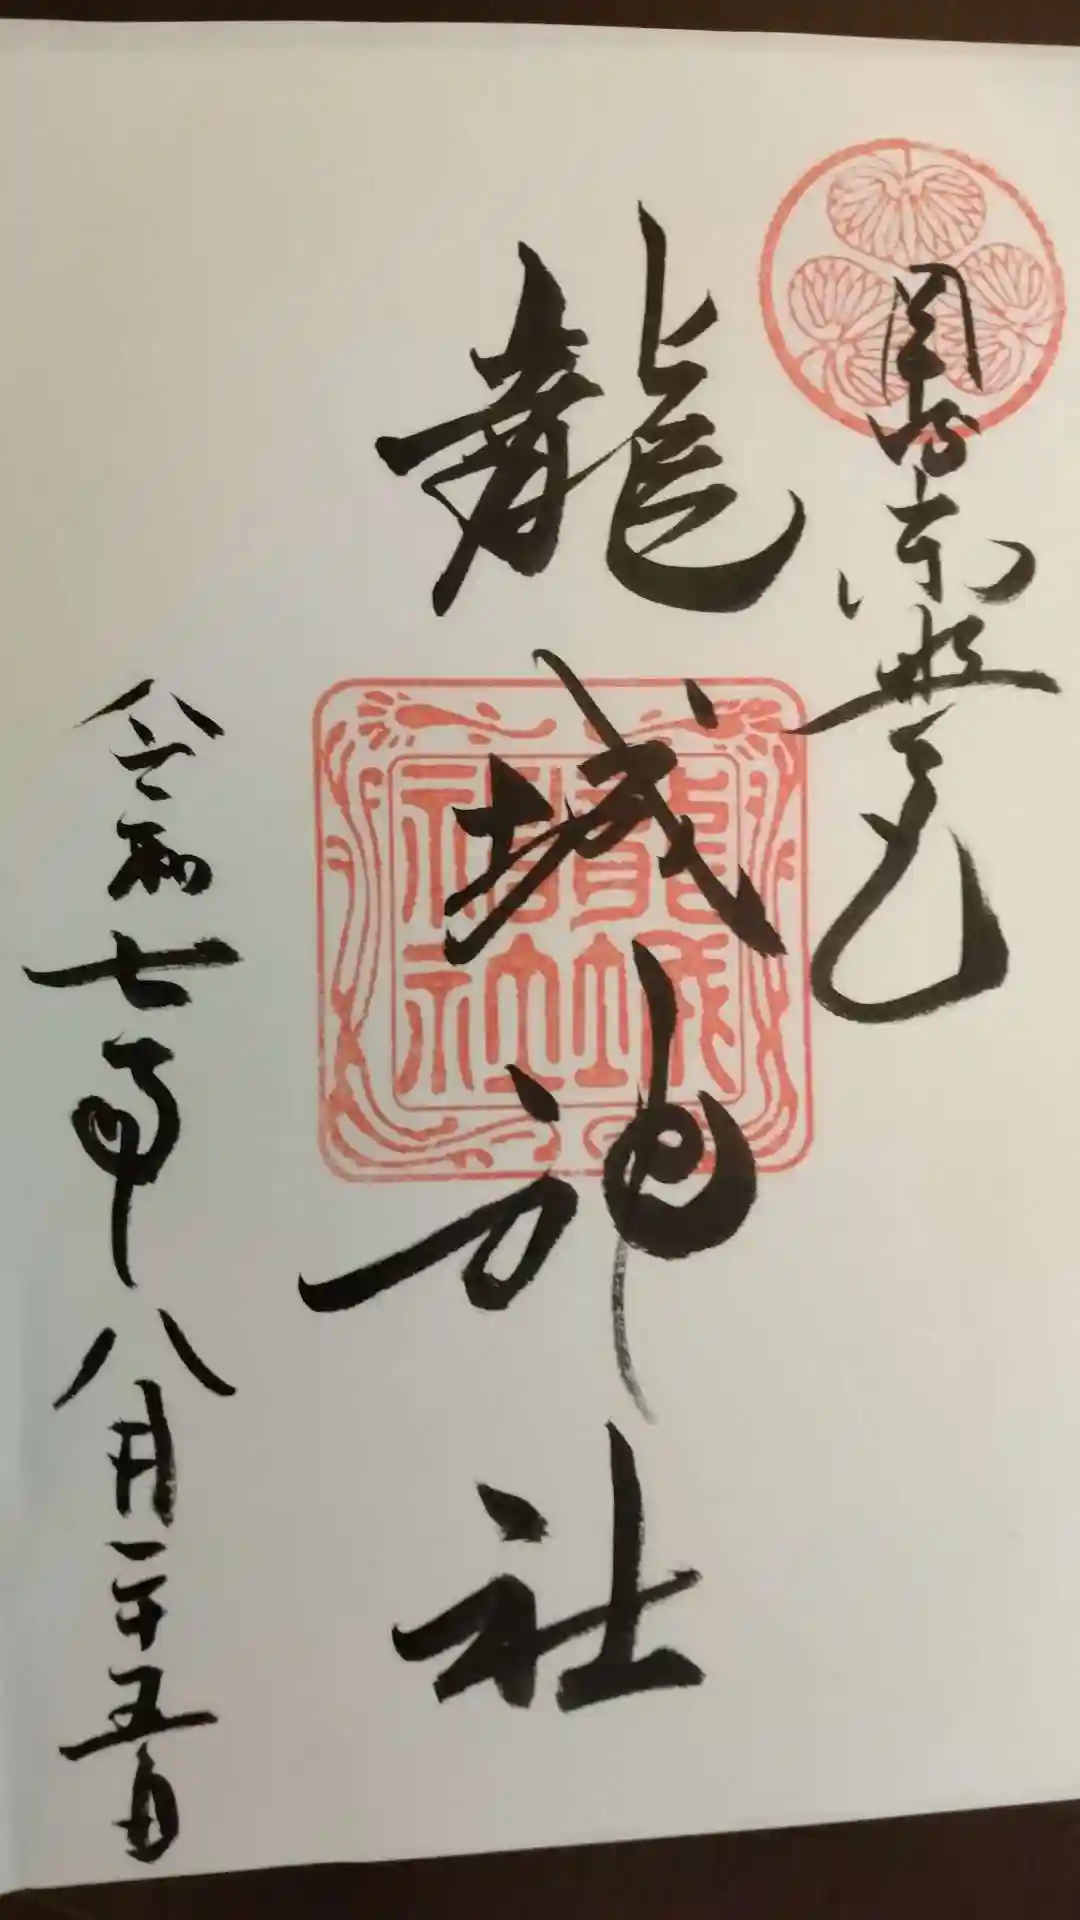 岡崎東照宮
龍城神社
龍城神社
令和七年八月二十五日